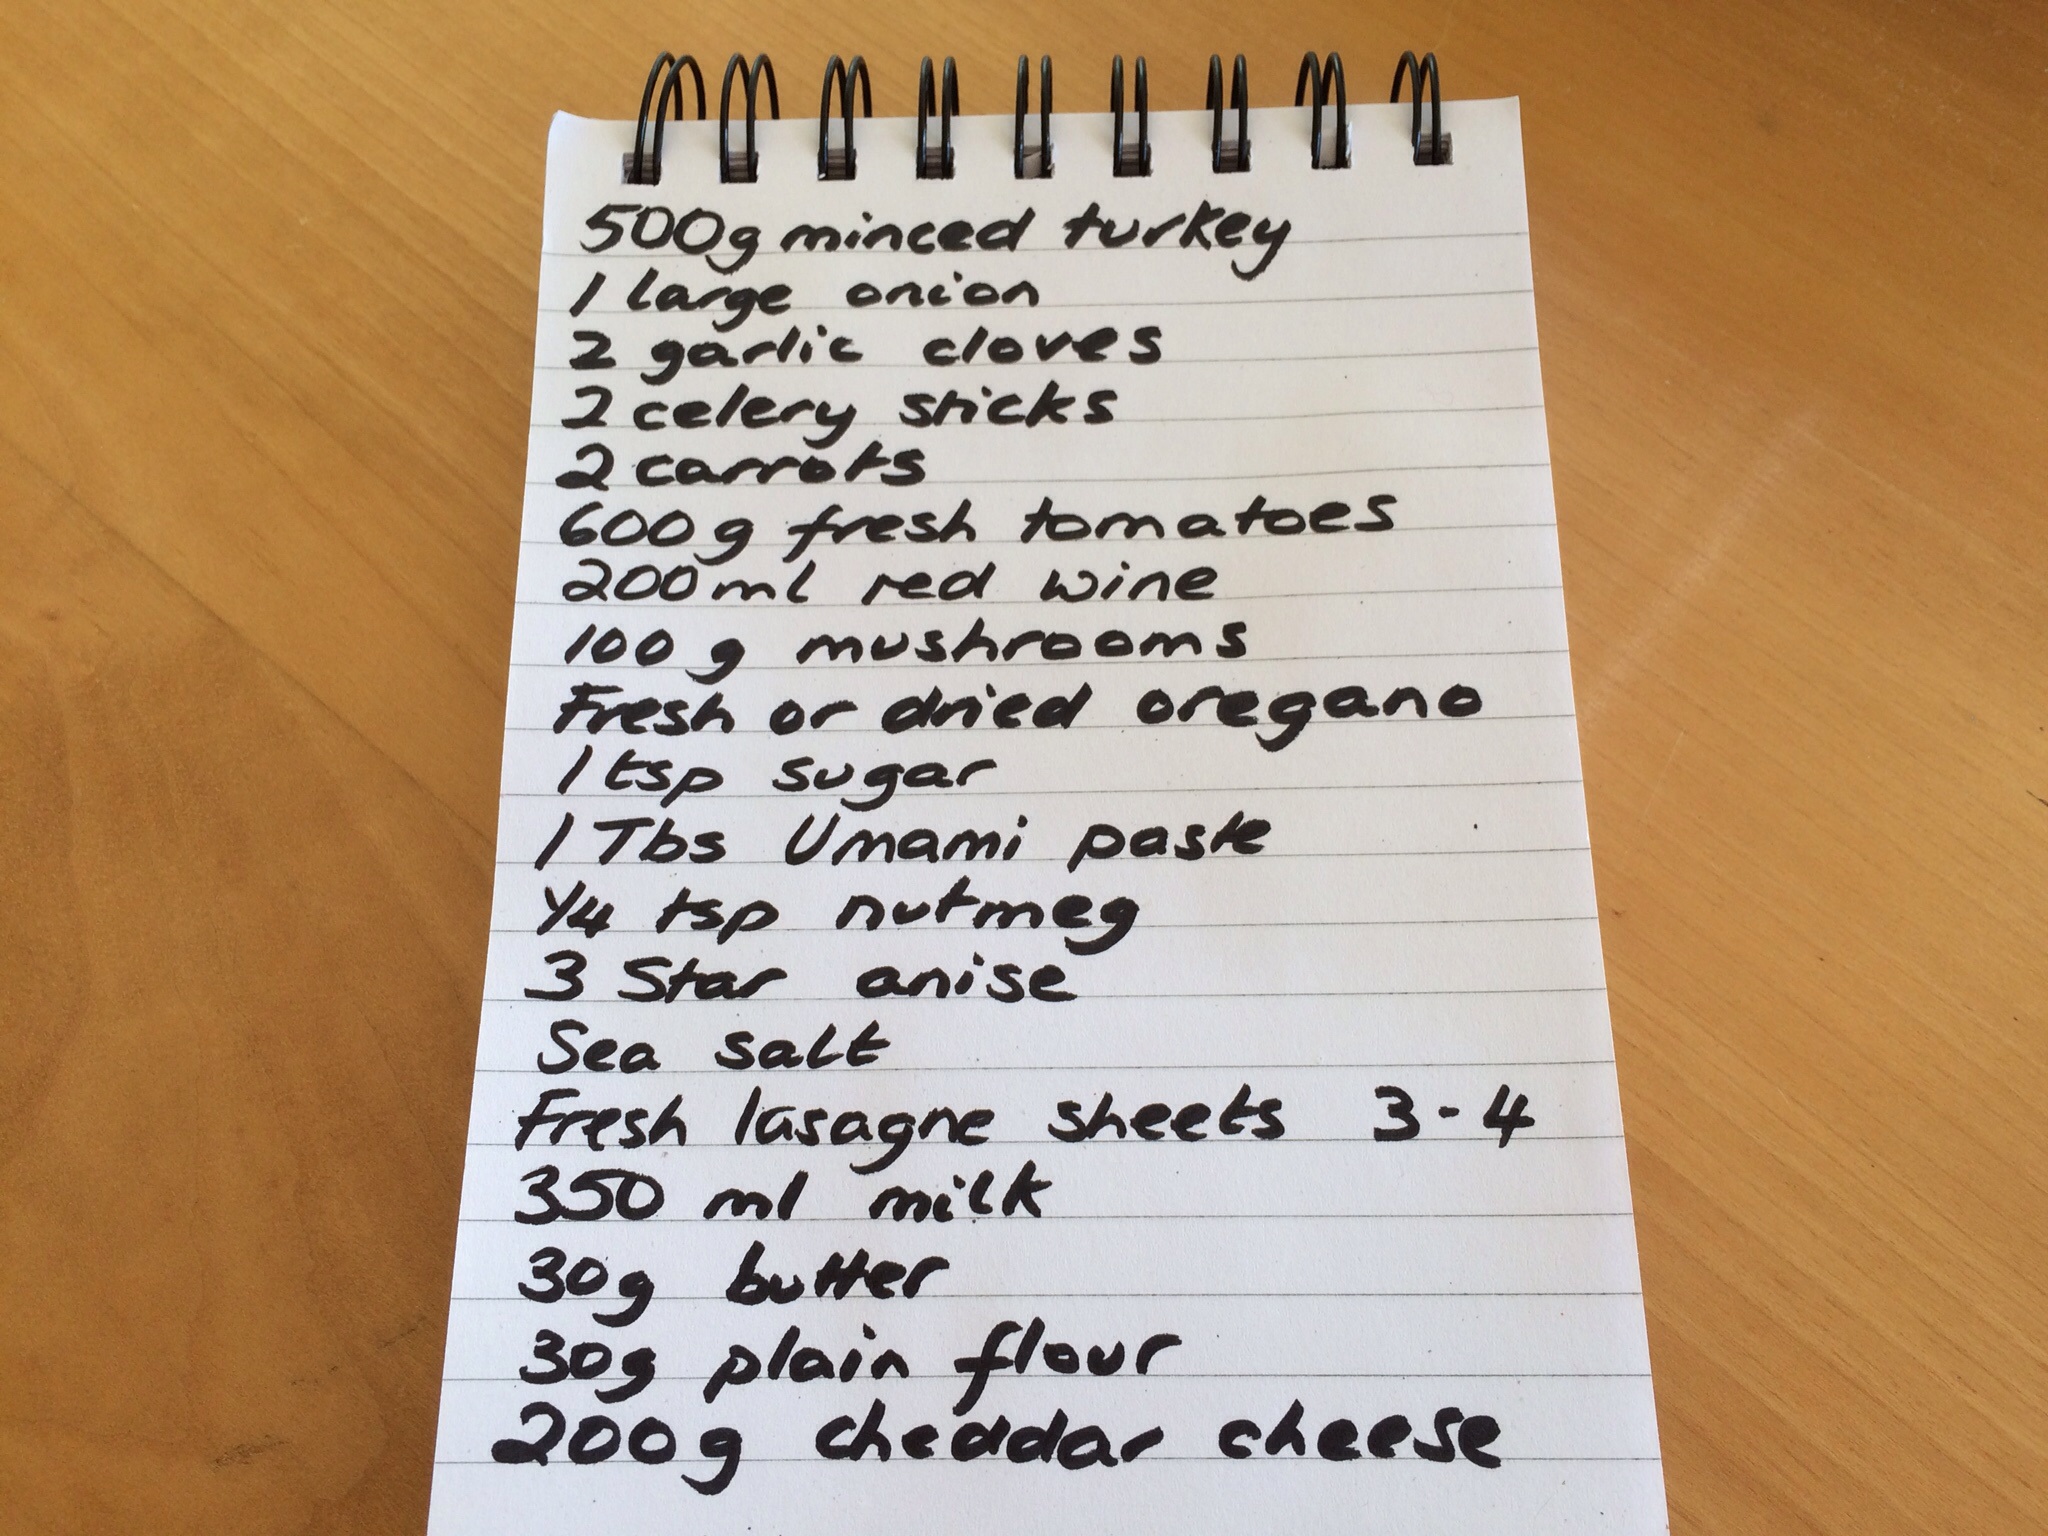 500g minced turkey
1 large onion
2 garlic cloves
2 celery sticks
2 carrots
600g fresh tomatoes
200ml red wine
100g mushrooms
Fresh or dried oregano
1 tsp sugar
1 Tbs Umami paste
1/4 tsp nutmeg
3 Star anise
Sea salt
Fresh lasagne sheets 3-4
350 ml milk
30g butter
30g plain flour
200g cheddar cheese